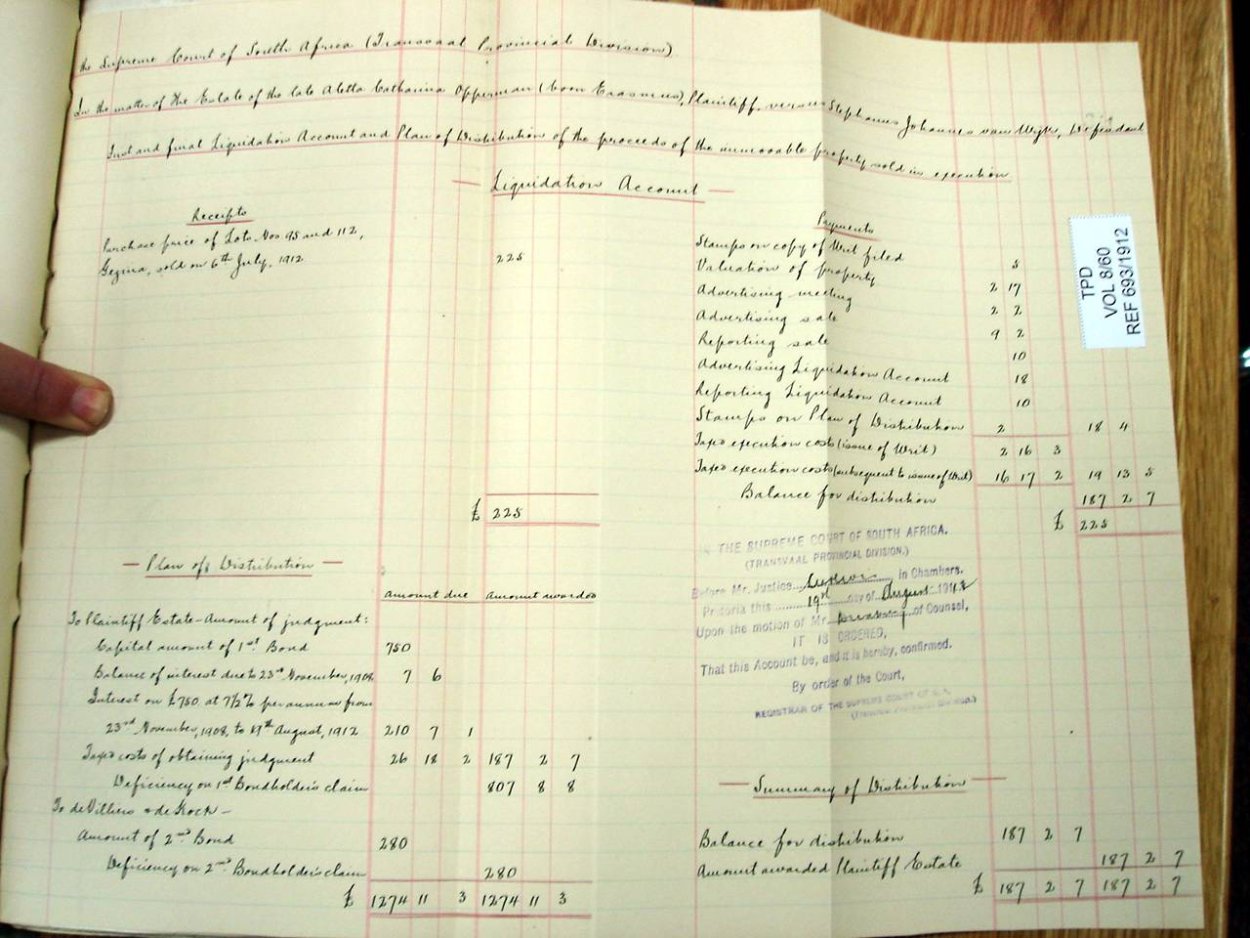 the Supreme Court of South Africa (Transvaal Provincial Division)
In the matter of the Estate of the late Aletta Catharina Opperman (born Erasmus), Plaintiff, versus Stephanus Johannes van Wijk, Defendant
First and final Liquidation Account and Plan of Distribution of the proceeds of the immovable property sold in execution
— Liquidation Account —
Receipts
Purchase price of Lots Nos 95 and 112,
Gezina, sold on 6th July, 1912 225
£ 225
Payments
Stamps on copy of Writ filed 5
Valuation of property 2 17
Advertising meeting 2 2
Advertising sale 9 2
Reporting sale 10
Advertising Liquidation Account 18
Reporting Liquidation Account 10
Stamps on Plan of Distribution 2 18 4
Taxed execution costs (issue of Writ) 2 16 3
Taxed execution costs (subsequent to issue of Writ) 16 17 2 19 13 5
Balance for distribution 187 2 7
£ 225
TPD
VOL 8/60
REF 693/1912
IN THE SUPREME COURT OF SOUTH AFRICA.
(TRANSVAAL PROVINCIAL DIVISION.)
Before Mr. Justice in Chambers.
Pretoria this 19th day of August 1912
Upon the motion of Mr. of Counsel,
IT IS ORDERED,
That this Account be, and it is hereby, confirmed.
By order of the Court,
REGISTRAR OF THE SUPREME COURT OF S.A.
(TRANSVAAL PROVINCIAL DIVISION.)
— Plan of Distribution —
amount due amount awarded
To Plaintiff Estate - Amount of judgment:
Capital amount of 1st Bond 750
Balance of interest due to 23rd November, 1908 7 6
Interest on £750 at 7½% per annum from
23rd November, 1908, to 19th August, 1912 210 7 1
Taxed costs of obtaining judgment 26 18 2 187 2 7
Deficiency on 1st Bondholder's claim 807 8 8
To de Villiers & de Kock -
Amount of 2nd Bond 280
Deficiency on 2nd Bondholder's claim 280
£ 1274 11 3 1274 11 3
— Summary of Distribution —
Balance for distribution 187 2 7
Amount awarded Plaintiff Estate 187 2 7
£ 187 2 7 187 2 7